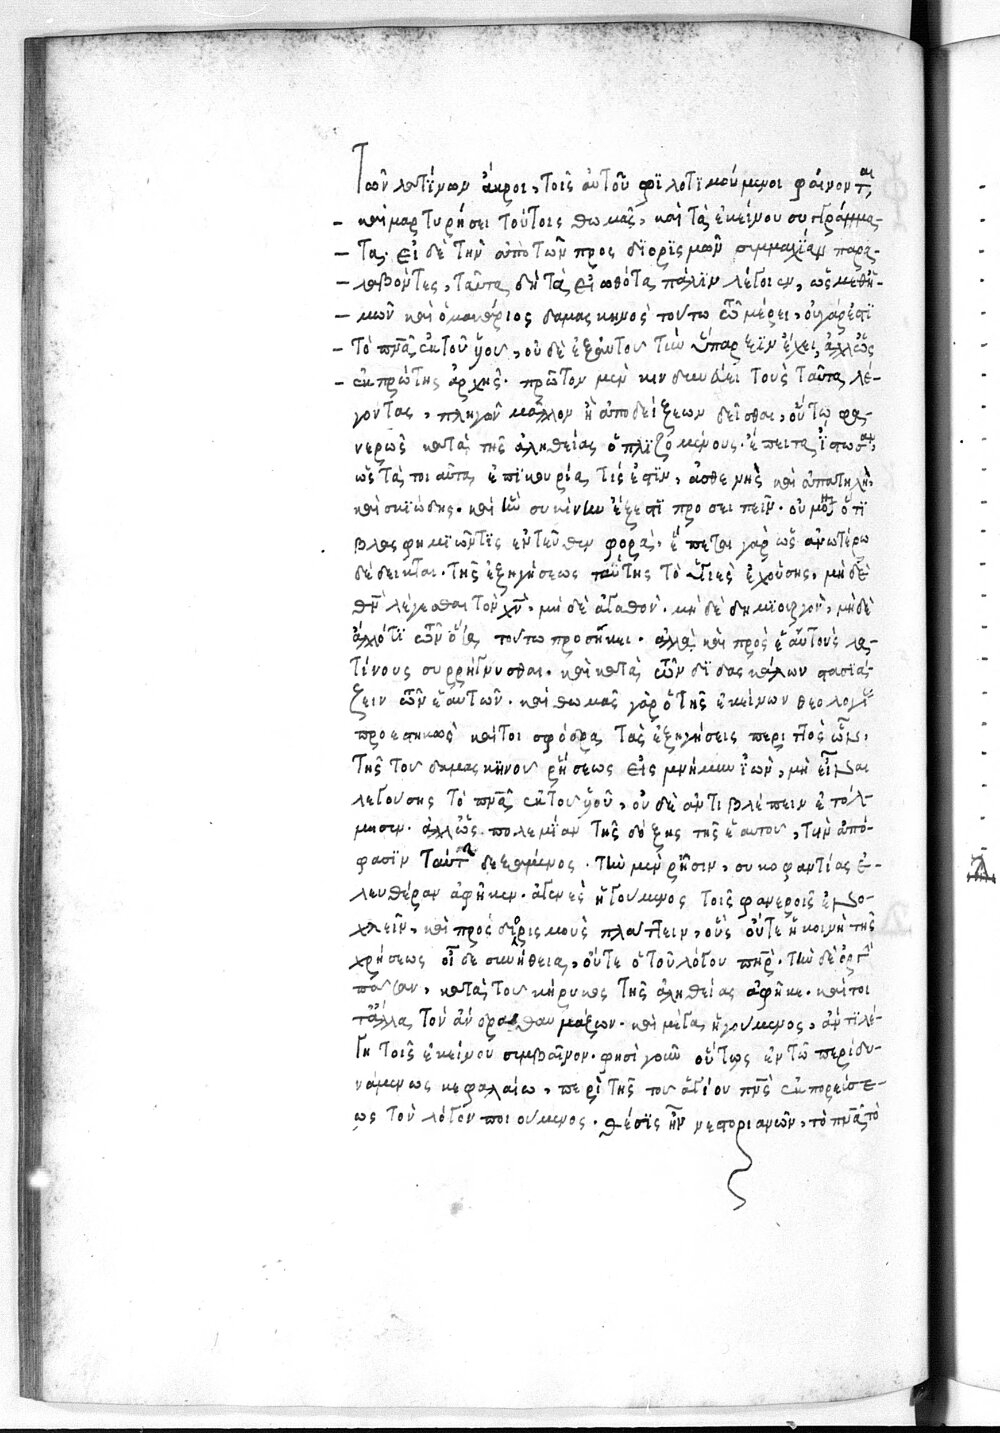 Τῶν λατίνων ἄκροι, τοῖς αὐτοῦ φιλοτιμούμενοι φαίνονται
καὶ μαρτυρήσει τούτοις θωμᾶς, καὶ τὰ ἐκείνου συγγράμμα-
τα. εἰ δὲ τὴν ἀπὸ τῶν προσδιορισμῶν συμμαχίαν παρα-
λαβόντες, ταῦτα δὴ τὰ εἰωθότα πάλιν λέγοιεν, ὡς μεθ' ἡ-
μῶν καὶ ὁ μακάριος δαμασκηνὸς τούτω τῶ μέρει, οὐ γάρ ἐστι
τὸ πνᾶ ἐκ τοῦ ὑοῦ, οὐδὲ ἐξ αὐτοῦ τὴν ὕπαρξιν ἔχει, ἀλλ' ὡς
ἐκ πρώτης ἀρχῆς. πρῶτον μὲν κινδυνεύει τοὺς ταῦτα λέ-
γοντας, πληγῶν μᾶλλον ἢ ἀποδείξεων δεῖσθαι, οὕτω φα-
νερῶς κατὰ τῆς ἀληθείας ὁπλιζομένους. ἔπειτα
ὡς τὰ τοιαῦτα ἐπικουρία τίς ἐστιν, ἀσθενὴς καὶ ἀπατηλὴ,
καὶ σκιώδης. καὶ ἣν συκίνην ἔξεστι προσειπεῖν. οὐ μὴν ὅτι
βλασφημιῶν τίς ἐντεῦθεν φορά. ἕπεται γὰρ ὡς ἀνωτέρω
δέδεικται. τῆς ἐξηγήσεως ταύτης τὸ ὑγιὲς ἐχούσης, μηδὲ
θν λέγεσθαι τὸν χν, μηδὲ ἀγαθὸν. μηδὲ δημιουργὸν, μηδὲ
ἄλλό τι τῶν ὅσα τούτω προσήκει. ἀλλὰ καὶ πρὸς ἑαυτοὺς λα-
τίνους συρρήγνυσθαι. καὶ κατὰ τῶν διδασκάλων στασιά-
ζειν τῶν ἑαυτῶν. καὶ θωμᾶς γὰρ ὁ τῆς ἐκείνων θεολογίας
προεστηκὼς καίτοι σφόδρα τὰς ἐξηγήσεις περι
τῆς τοῦ δαμασκηνοῦ ῥήσεως εἰς μνήμην ἰὼν, μὴ εἶναι
λεγούσης τὸ πνᾶ ἐκ τοῦ ὑοῦ, οὐδὲ ἀντιβλέπειν ἐτόλ-
μησεν. ἀλλ' ὡς πολεμίαν τῆς δόξης τῆς ἑαυτοῦ, τὴν ἀπό-
φασιν ταύτην δεξάμενος. τὴν μὲν ῥῆσιν, συκοφαντίας ἐ-
λευθέραν ἀφῆκεν. ἀγεννὲς ἡγούμενος τοῖς φανεροῖς ἐνο-
χλεῖν, καὶ προσδιορισμοὺς πλάττειν, οὓς οὔτε ἡ κοινὴ τῆς
χρήσεως οἶδε συνήθεια, οὔτε ὁ τοῦ λόγου πηρ. τὴν δὲ ὀργὴν
πᾶσαν, κατὰ τοῦ κήρυκος τῆς ἀληθείας ἀφῆκε. καίτοι
τἄλλα τὸν ἄνδρα θαυμάζων. καὶ μέγα ἡγούμενος, ἂν τι λέ-
γη τοῖς ἐκείνου συμβαῖνον. φησὶ γοῦν οὕτως ἐν τῶ περὶ δυ-
νάμεως κεφαλαίω, περὶ τῆς τοῦ ἁγίου πνς ἐκπορεύσε-
ως τὸν λόγον ποιούμενος. θέσις ἦν νεστοριανῶν, τὸ πνᾶ τὸ